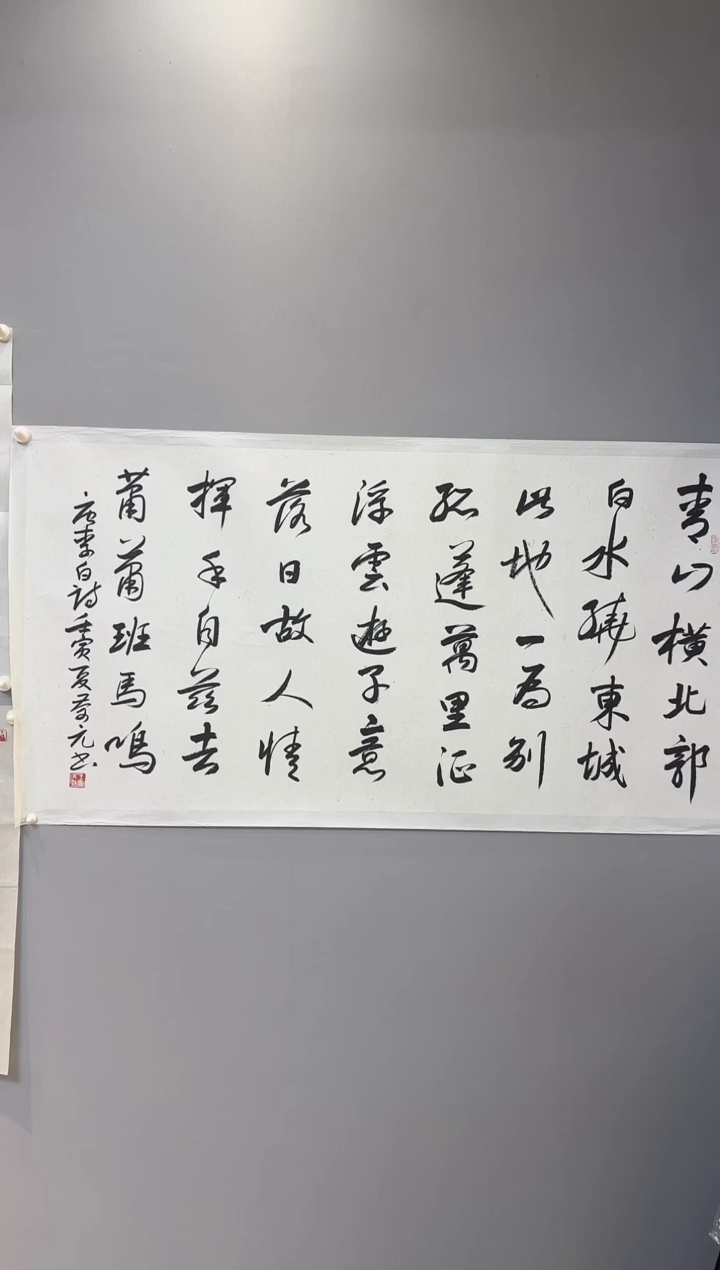 青山橫北郭
白水繞東城
此地一為別
孤蓬萬里征
浮雲遊子意
落日故人情
揮手自茲去
蕭蕭班馬鳴
唐李白詩壬寅夏萬元书